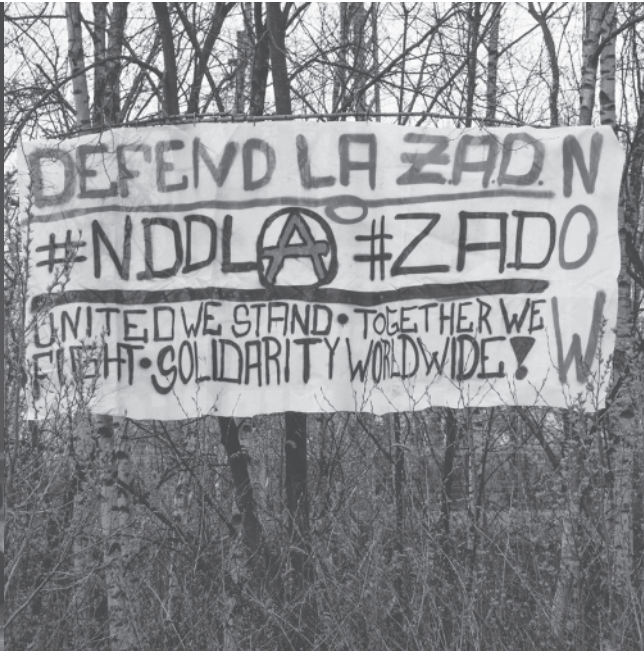 DEFEND LA Z.A.D.
#NDDLA #ZAD
UNITED WE STAND • TOGETHER WE
FIGHT • SOLIDARITY WORLDWIDE!
NOW